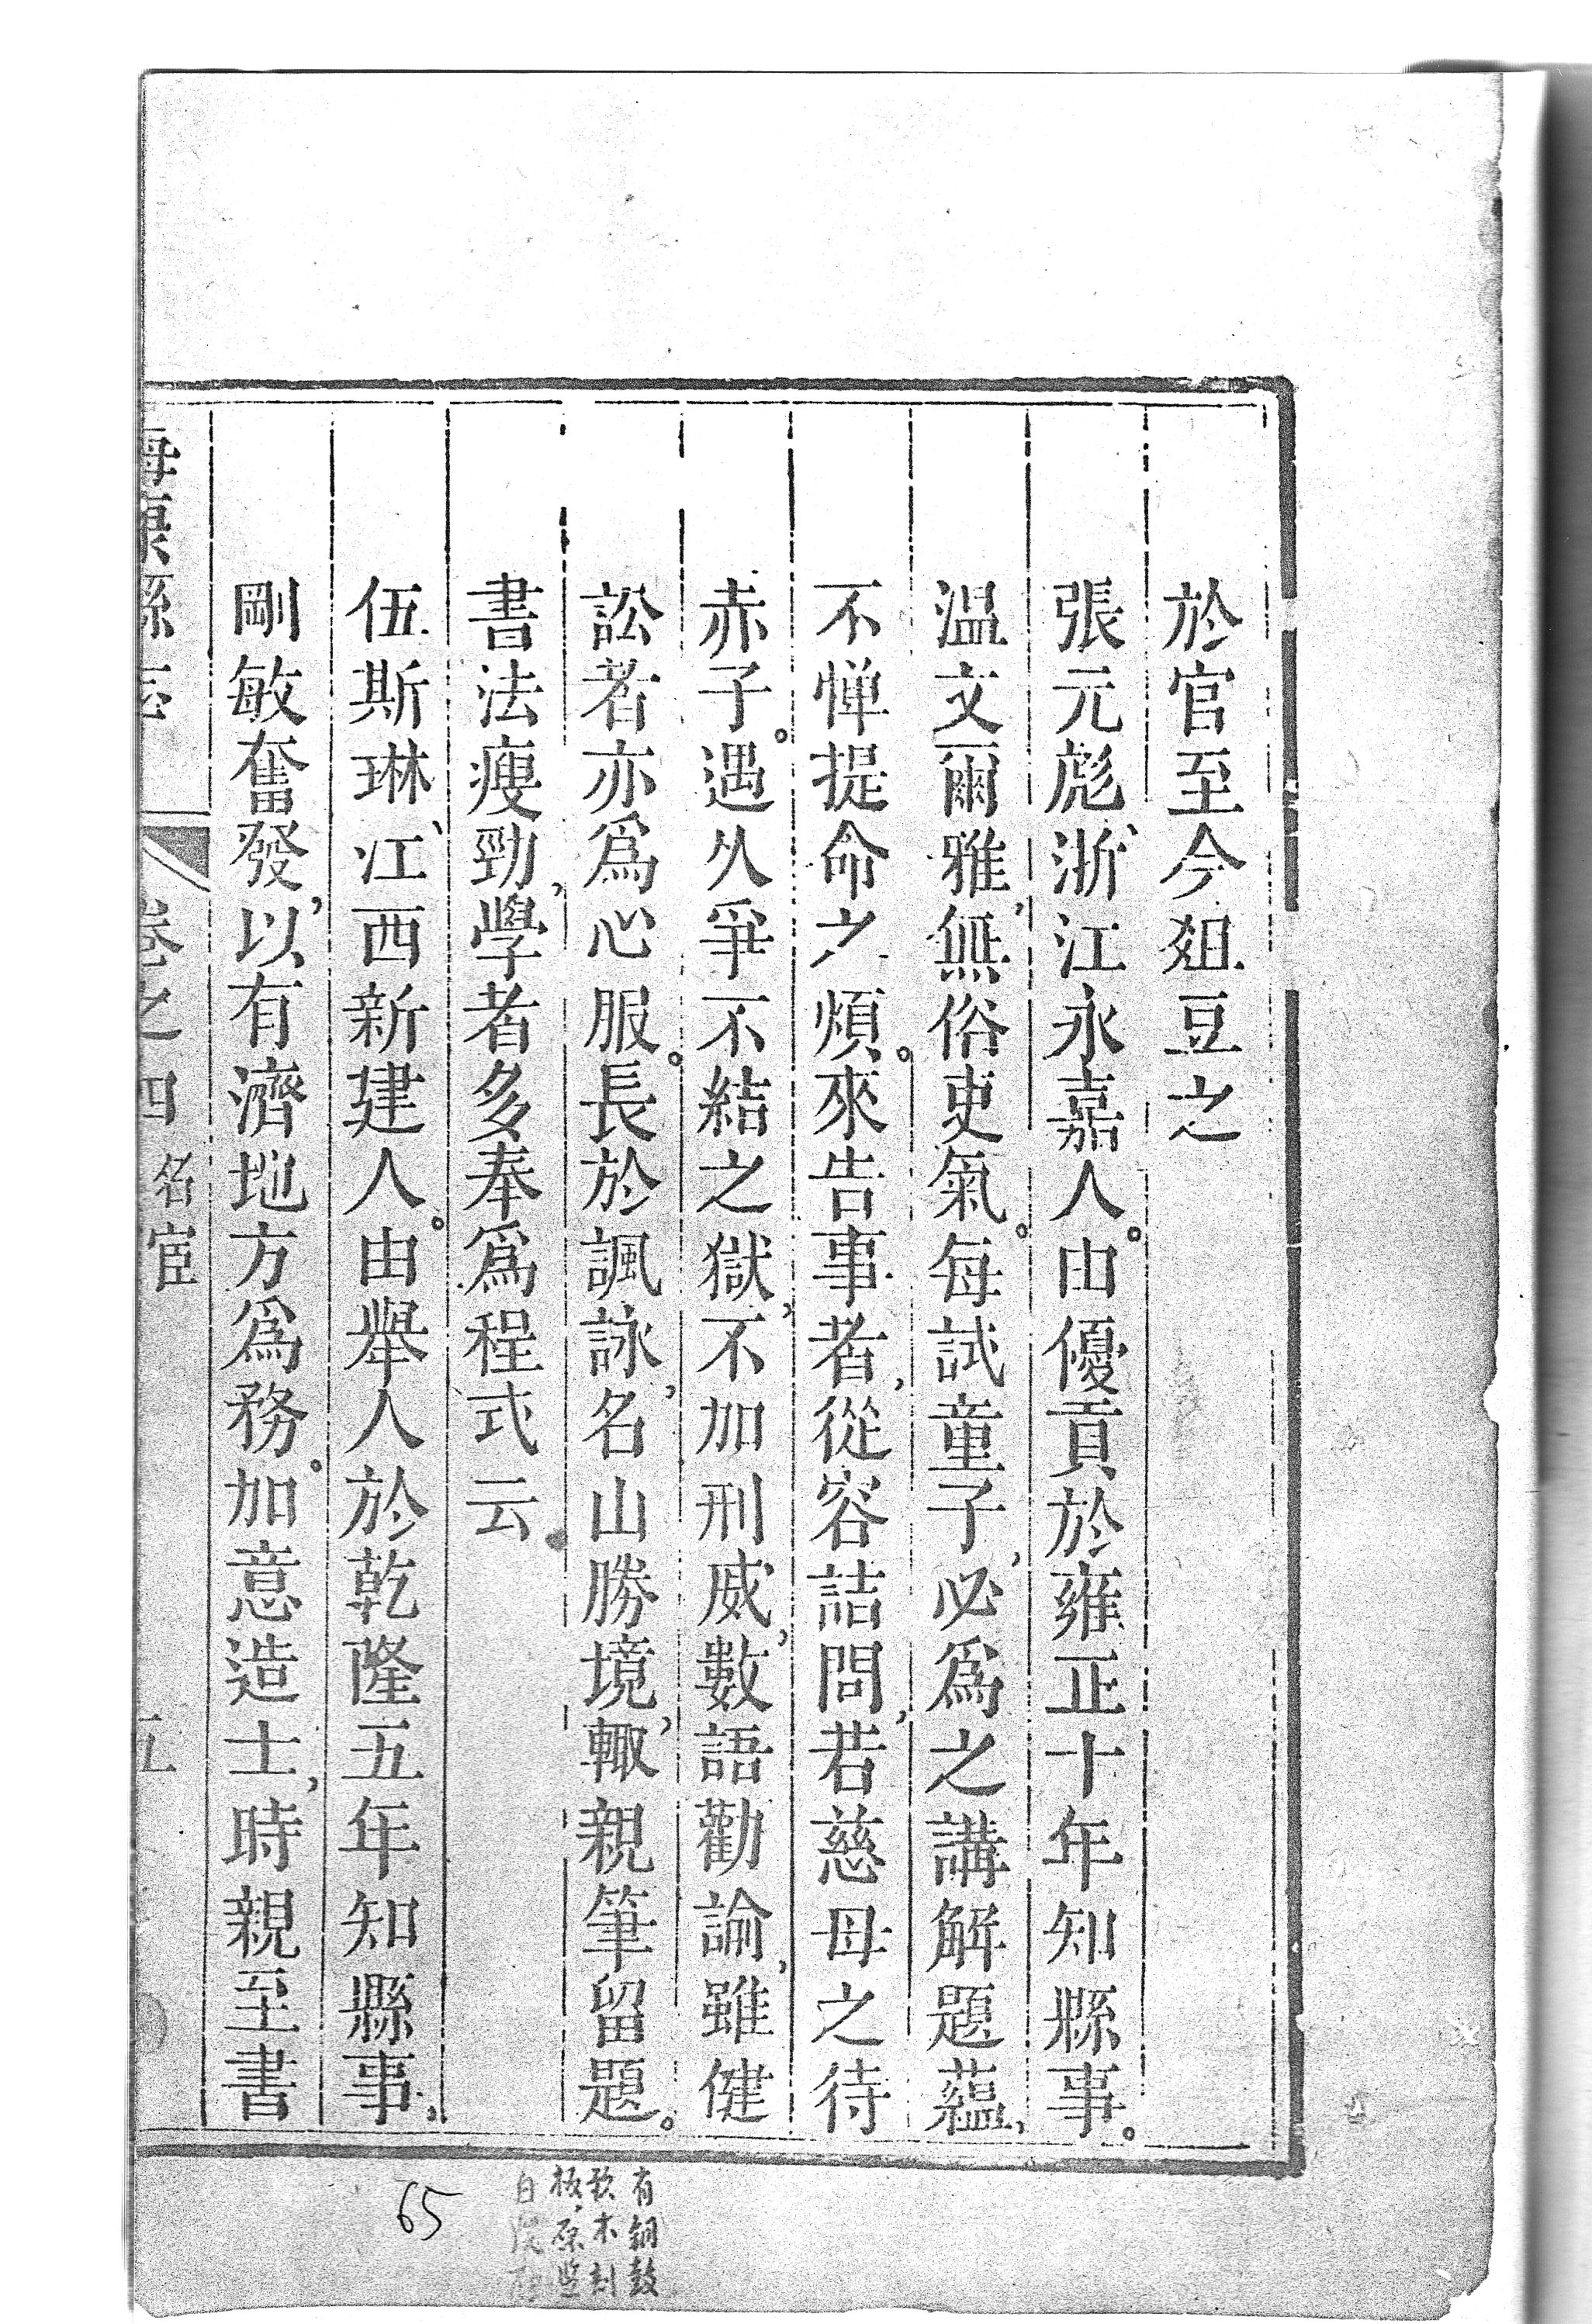 於官至今俎豆之
張元彪、浙江永嘉人。由優貢於雍正十年知縣事。
溫文爾雅，無俗吏氣。每試童子，必爲之講解題蘊，
不憚提命之煩。來告事者，從容詰問，若慈母之待
赤子。遇久爭不結之獄，不加刑威，數語勸諭，雖健
訟者亦爲心服。長於諷詠，名山勝境，輒親筆留題。
書法瘦勁，學者多奉爲程式云
伍斯琳、江西新建人。由舉人於乾隆五年知縣事。
剛敏奮發，以有濟地方爲務。加意造士，時親至書
海康縣志 卷之四 名宦 五
65
有銅鼓
歌木刻
板，原